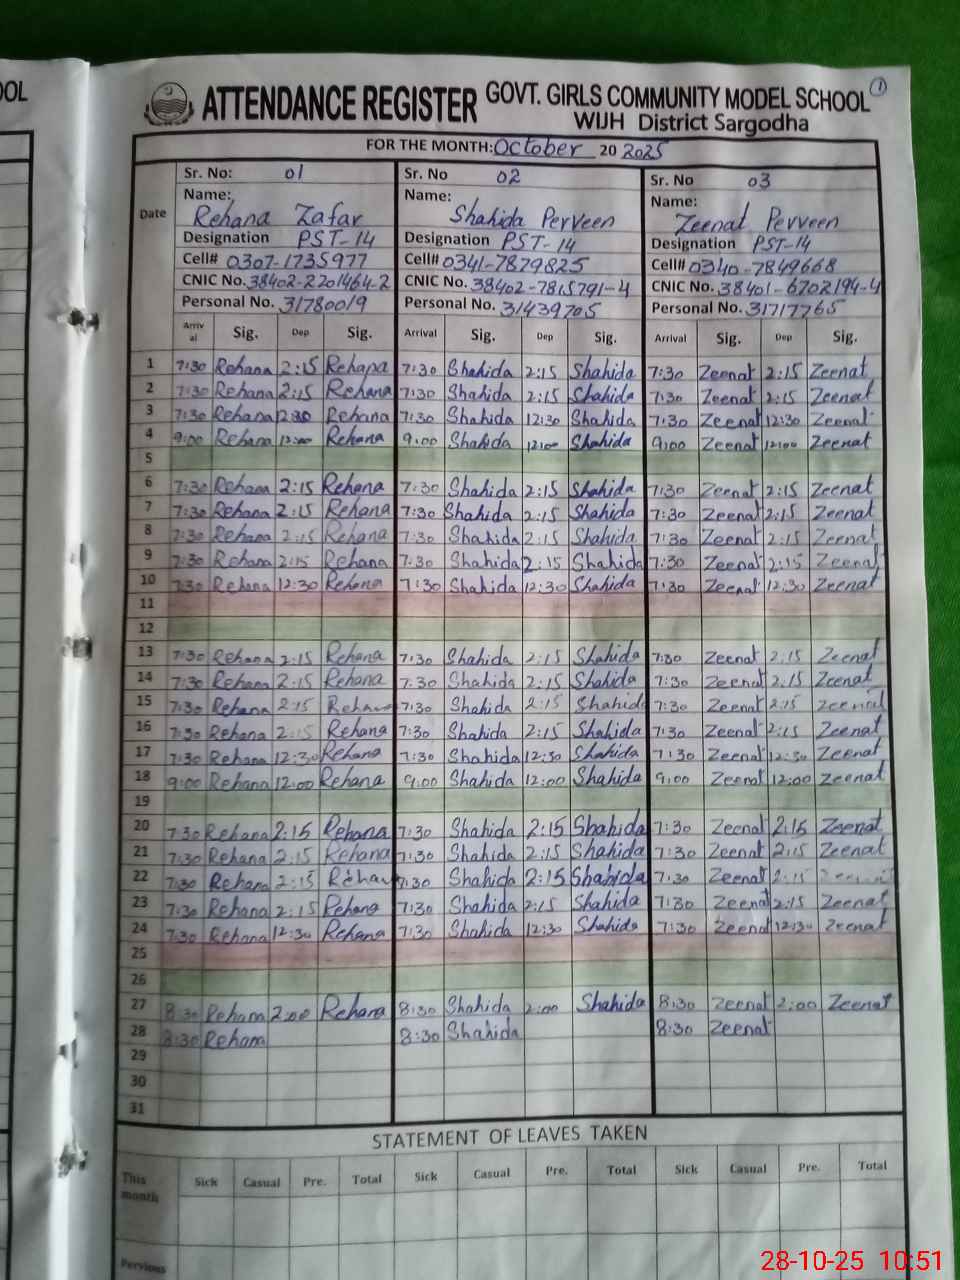 OOL
ATTENDANCE REGISTER GOVT. GIRLS COMMUNITY MODEL SCHOOL 1
WIJH District Sargodha
FOR THE MONTH: October 20 2025
Date
Sr. No: 01 Sr. No 02 Sr. No 03
Name: Name: Name:
Rehana Zafar Shahida Perveen Zeenat Perveen
Designation PST-14 Designation PST-14 Designation PST-14
Cell# 0307-1735977 Cell# 0341-7879825 Cell# 0340-7849668
CNIC No. 38402-2201464-2 CNIC No. 38402-7815791-4 CNIC No. 38401-6702194-4
Personal No. 31780019 Personal No. 31439705 Personal No. 31717765
Arriv al Sig. Dep Sig. Arrival Sig. Dep Sig. Arrival Sig. Dep Sig.
1 7:30 Rehana 2:15 Rehana 7:30 Shahida 2:15 Shahida 7:30 Zeenat 2:15 Zeenat
2 7:30 Rehana 2:15 Rehana 7:30 Shahida 2:15 Shahida 7:30 Zeenat 2:15 Zeenat
3 7:30 Rehana 12:30 Rehana 7:30 Shahida 12:30 Shahida 7:30 Zeenat 12:30 Zeenat
4 9:00 Rehana 12:00 Rehana 9:00 Shahida 12:00 Shahida 9:00 Zeenat 12:00 Zeenat
5
6 7:30 Rehana 2:15 Rehana 7:30 Shahida 2:15 Shahida 7:30 Zeenat 2:15 Zeenat
7 7:30 Rehana 2:15 Rehana 7:30 Shahida 2:15 Shahida 7:30 Zeenat 2:15 Zeenat
8 7:30 Rehana 2:15 Rehana 7:30 Shahida 2:15 Shahida 7:30 Zeenat 2:15 Zeenat
9 7:30 Rehana 2:15 Rehana 7:30 Shahida 2:15 Shahida 7:30 Zeenat 2:15 Zeenat
10 7:30 Rehana 12:30 Rehana 7:30 Shahida 12:30 Shahida 7:30 Zeenat 12:30 Zeenat
11
12
13 7:30 Rehana 2:15 Rehana 7:30 Shahida 2:15 Shahida 7:30 Zeenat 2:15 Zeenat
14 7:30 Rehana 2:15 Rehana 7:30 Shahida 2:15 Shahida 7:30 Zeenat 2:15 Zeenat
15 7:30 Rehana 2:15 Rehana 7:30 Shahida 2:15 Shahida 7:30 Zeenat 2:15 Zeenat
16 7:30 Rehana 2:15 Rehana 7:30 Shahida 2:15 Shahida 7:30 Zeenat 2:15 Zeenat
17 7:30 Rehana 12:30 Rehana 7:30 Shahida 12:30 Shahida 7:30 Zeenat 12:30 Zeenat
18 9:00 Rehana 12:00 Rehana 9:00 Shahida 12:00 Shahida 9:00 Zeenat 12:00 Zeenat
19
20 7:30 Rehana 2:15 Rehana 7:30 Shahida 2:15 Shahida 7:30 Zeenat 2:15 Zeenat
21 7:30 Rehana 2:15 Rehana 7:30 Shahida 2:15 Shahida 7:30 Zeenat 2:15 Zeenat
22 7:30 Rehana 2:15 Rehana 7:30 Shahida 2:15 Shahida 7:30 Zeenat 2:15
23 7:30 Rehana 2:15 Rehana 7:30 Shahida 2:15 Shahida 7:30 Zeenat 2:15 Zeenat
24 7:30 Rehana 12:30 Rehana 7:30 Shahida 12:30 Shahida 7:30 Zeenat 12:30 Zeenat
25
26
27 8:30 Rehana 2:00 Rehana 8:30 Shahida 2:00 Shahida 8:30 Zeenat 2:00 Zeenat
28 8:30 Rehana 8:30 Shahida 8:30 Zeenat
29
30
31
STATEMENT OF LEAVES TAKEN
This month Sick Casual Pre. Total Sick Casual Pre. Total Sick Casual Pre. Total
Pervious
28-10-25 10:51